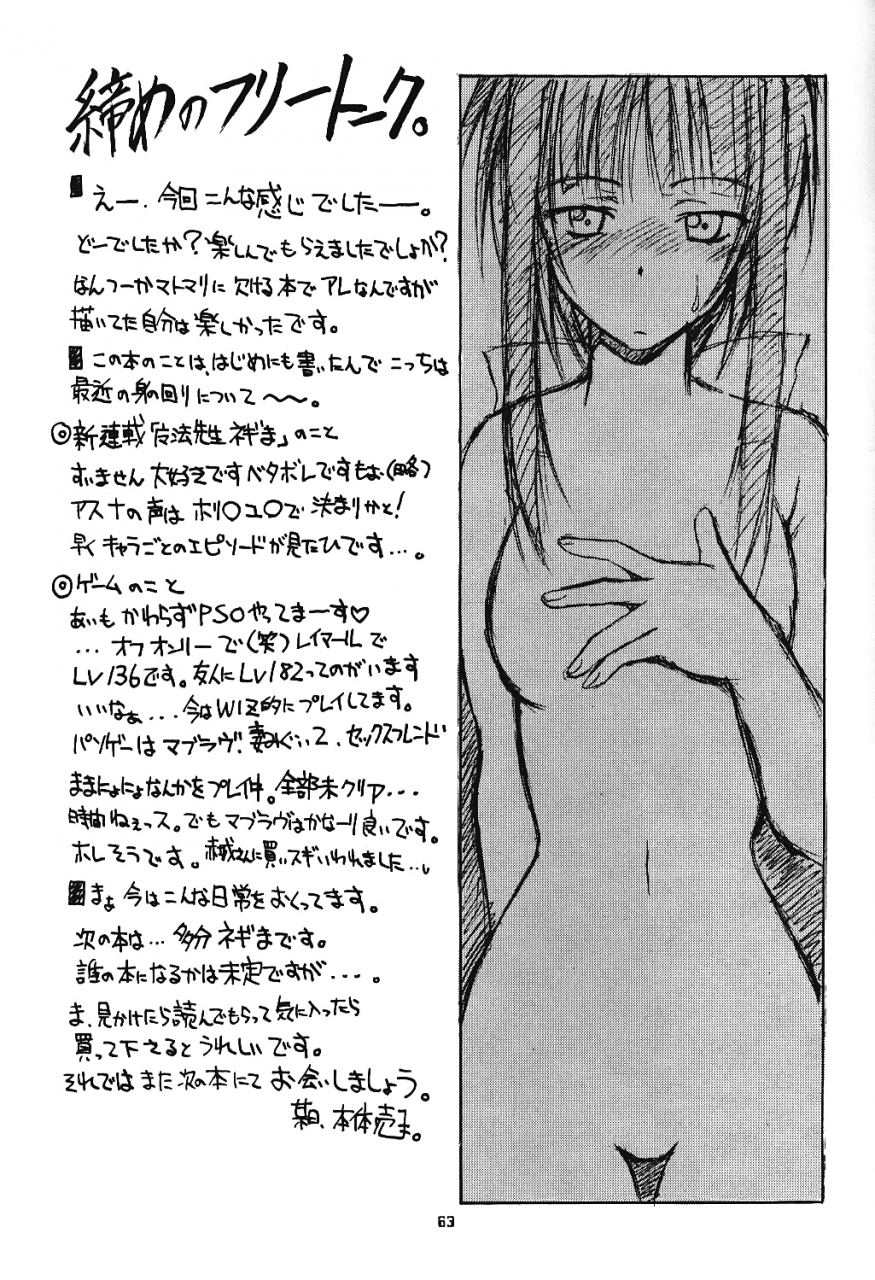 締めのフリートーク。
えー、今回こんな感じでしたー。
どーでしたか?楽しんでもらえましたでしょか?
なんつーかマトマリに欠ける本でアレなんですが
描いてた自分は楽しかったです。
この本のことは、はじめにも書いたんでこっちは
最近の身の回りについて〜〜。
◎新連載「魔法先生ネギま」のこと
すいません大好きですベタボレですもぉ(略)
アスナの声はホリ○ユ○で決まりかと!
早くキャラごとのエピソードが見たひです…。
◎ゲームのこと
あいもかわらずPSOやってまーす♡
…オフオンリーで(笑)レイマールで
LV136です。友人にLV182ってのがいます
いいなぁ...今はWIZ的にプレイしてます。
パソゲーはマブラヴ、妻みぐい2、セックスフレンド
ままにょにょなんかをプレイ中。全部未クリア...
時間ねぇっス。でもマブラヴはかなーり良いです。
ホレそうです。さんに買いスギいわれました…
まぁ今はこんな日常をおくってます。
次の本は…多分ネギまです。
誰の本になるかは未定ですが...。
ま、見かけたら読んでもらって気に入ったら
買って下さるとうれしいです。
それではまた次の本にてお会いしましょう。
某日、本体売る。
63